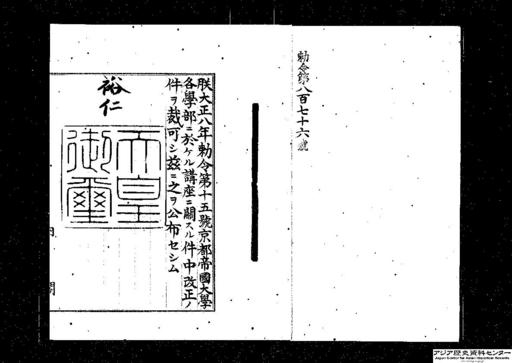 勅令第八百七十六號
朕大正八年勅令第十五號京都帝國大學
各學部ニ於ケル講座ニ關スル件中改正ノ
件ヲ裁可シ茲ニ之ヲ公布セシム
裕仁
天皇
御璽
アジア歴史資料センター
Japan Center for Asian Historical Records